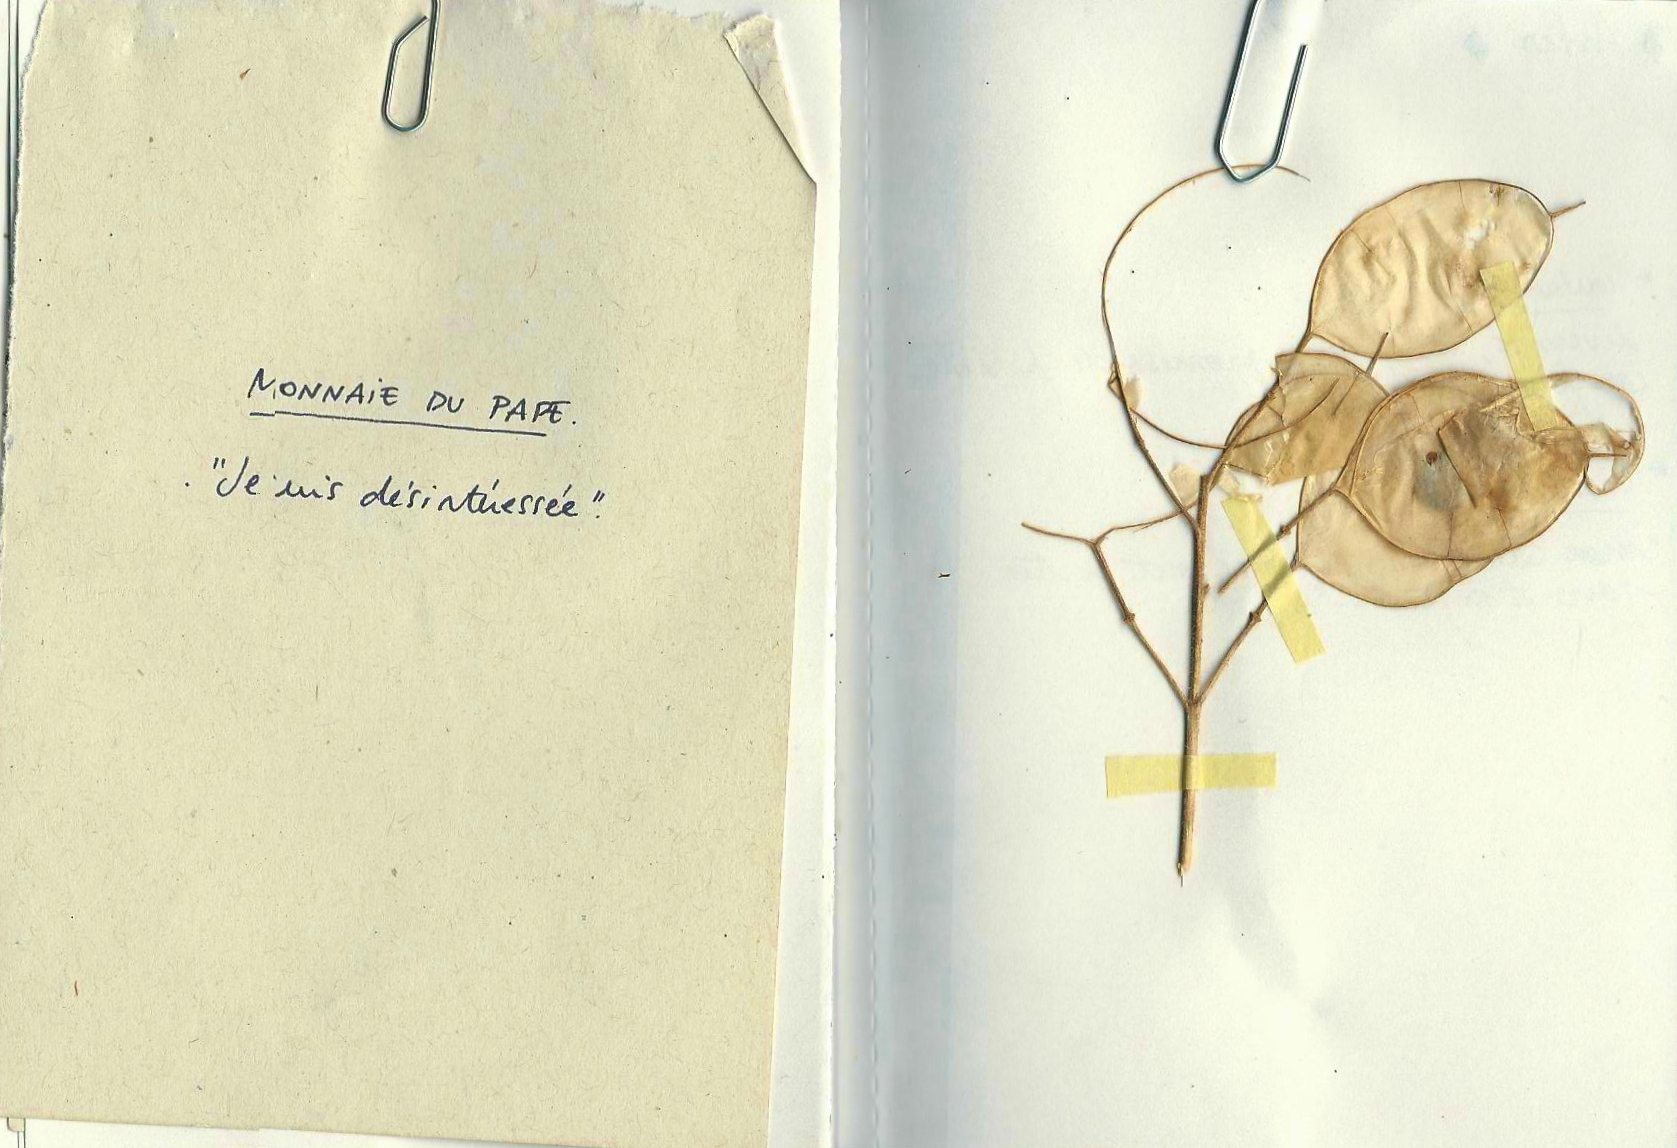 MONNAIE DU PAPE.
. "Je suis désintéressée".